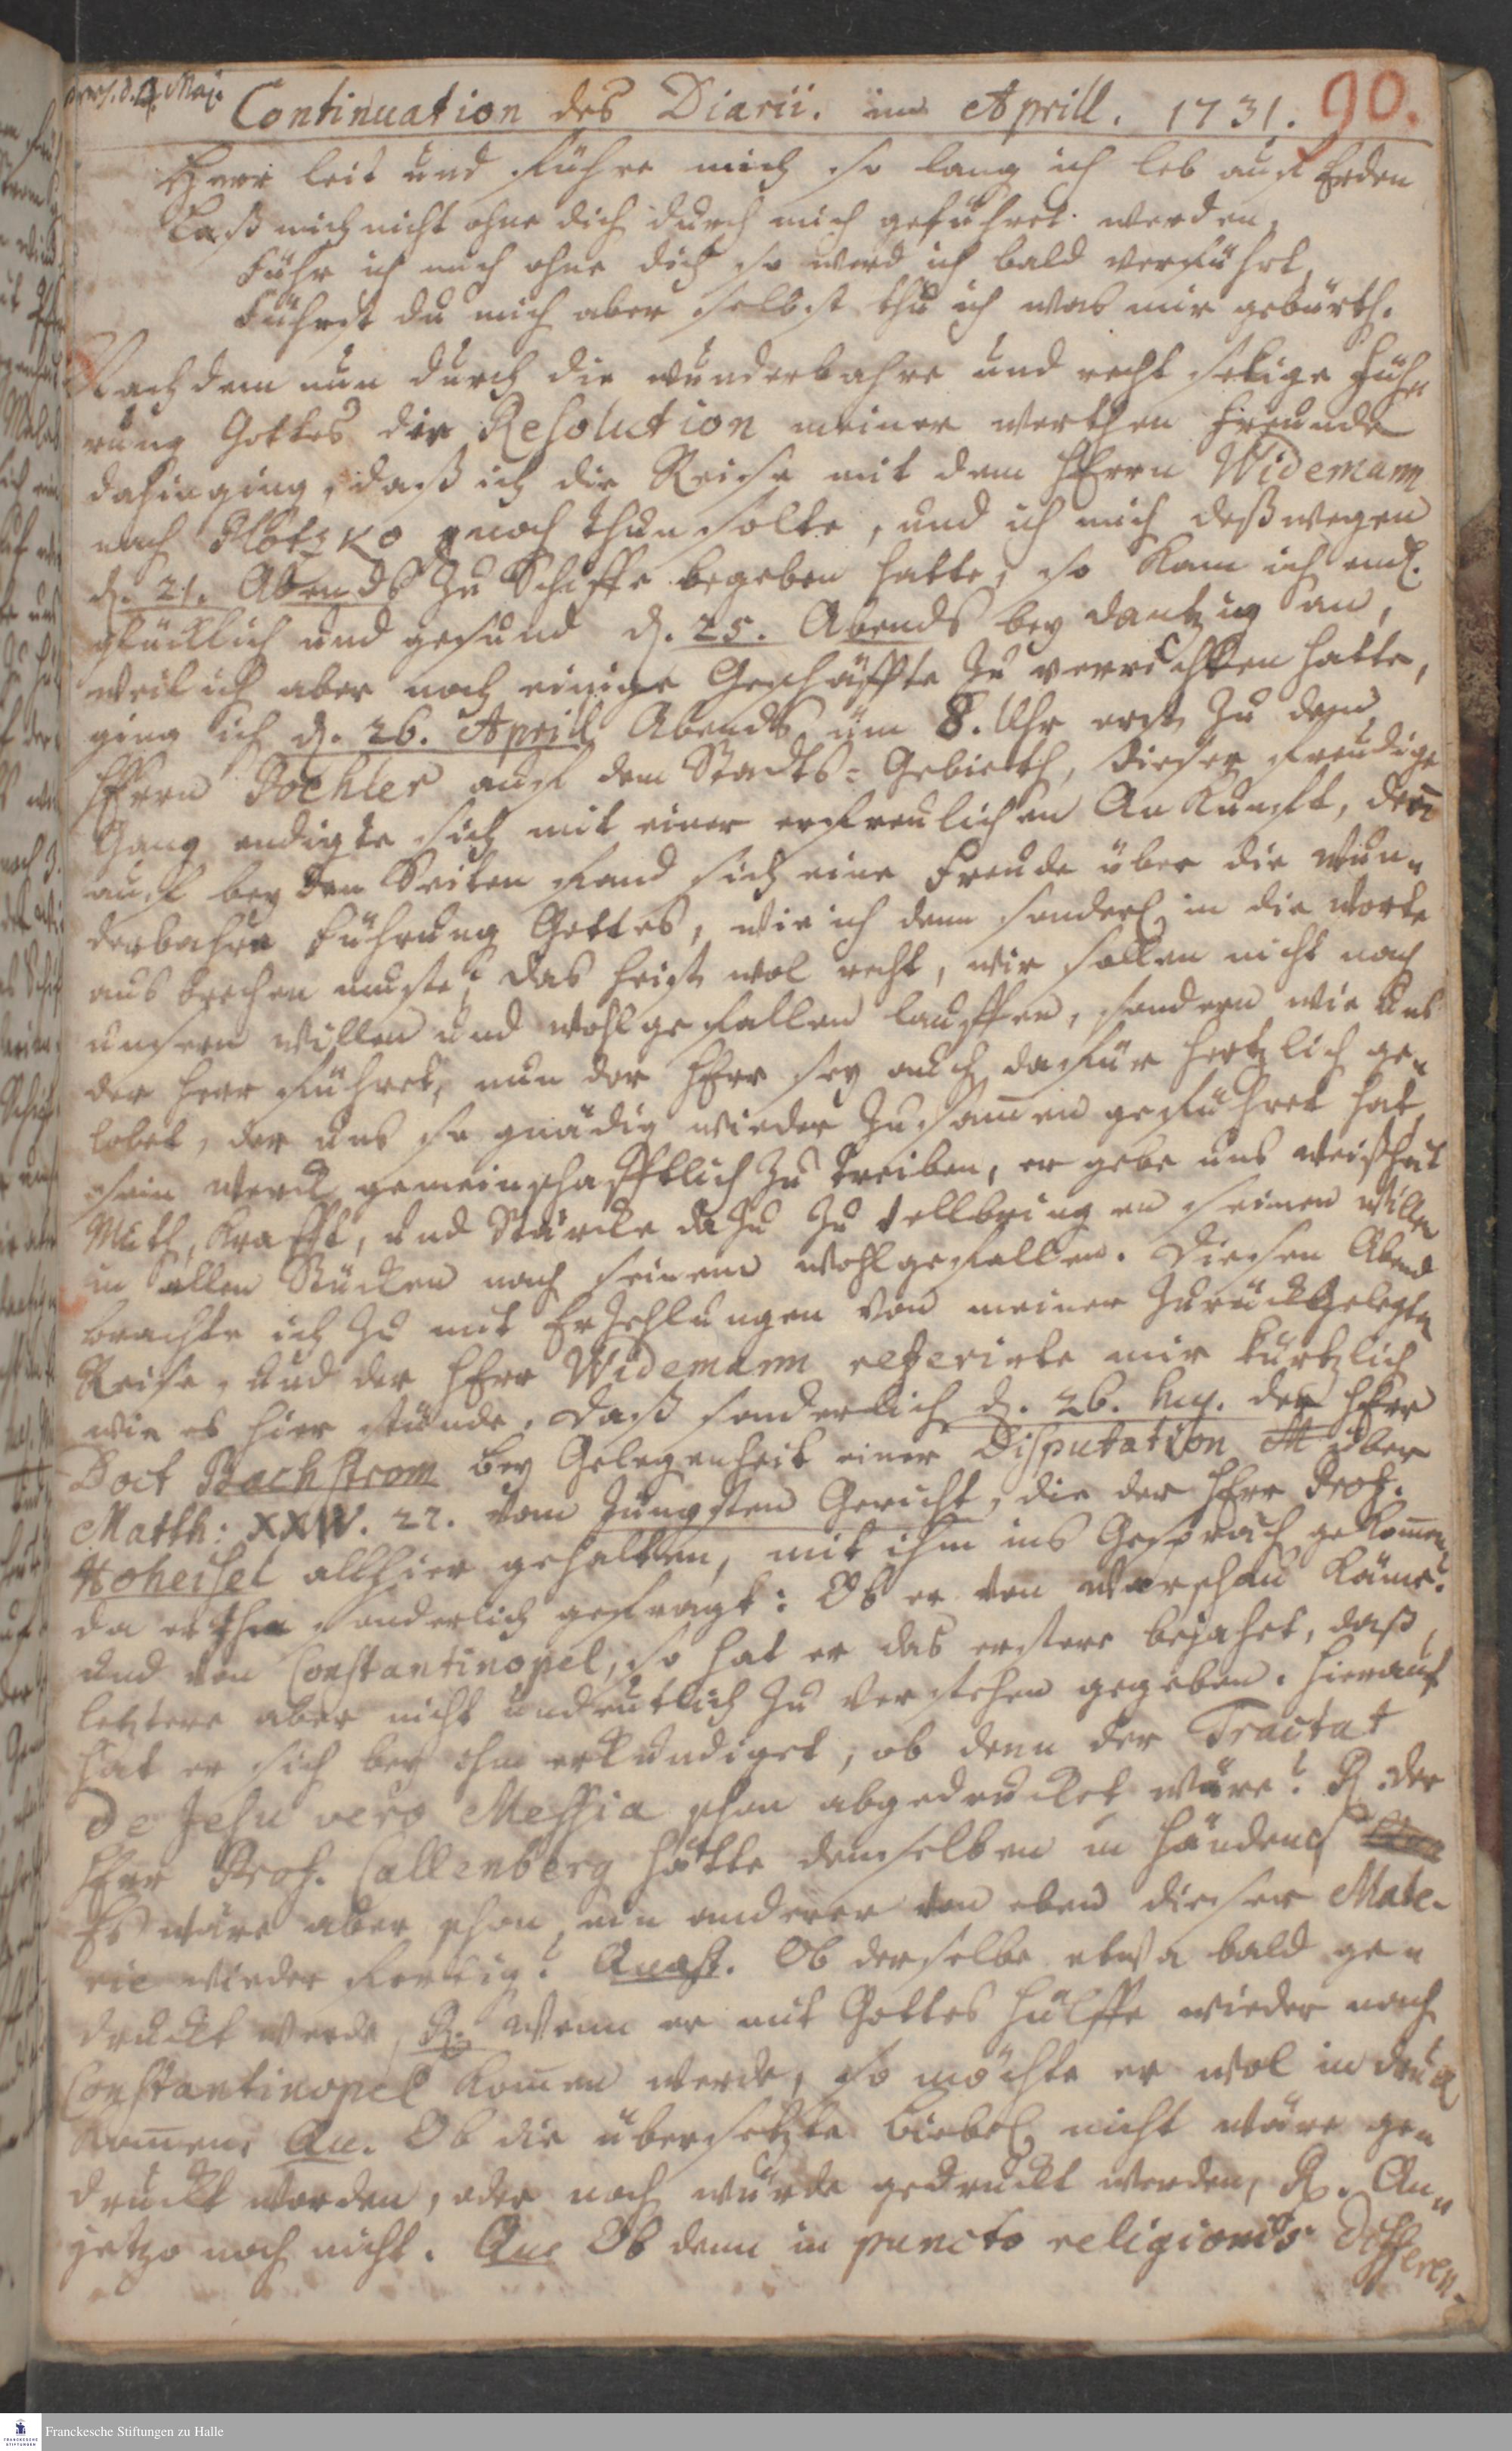 d. 4. Maj.
Continuation des Diarii. im Aprill. 1731. 90.
Herr leit und führe mich so lang ich leb auf Erden
Laß mich nicht ohne dich durch mich geführet werden,
Führ ich mich ohne dich so werd ich bald verführt,
Führst du mich aber selbst thu ich was mir gebürth.
Nachdem nun durch die wunderbahre und recht selige Füh-
rung Gottes die Resolution meiner werthen Freunde
dahinging, daß ich die Reise mit dem HErrn Widemann
nach Plotzko noch thun solte, und ich mich deßwegen
d. 21. Abends zu Schiffe begeben hatte, so kam ich endl.
glücklich und gesund d. 25. Abends bey Dantzig an,
weil ich aber noch einige Geschäffte zu verrichten hatte,
ging ich d. 26. Aprill Abends um 8. Uhr erst zu dem
HErrn Boehler auf dem Stadts-Gebieth, dieser freudige
Gang endigte sich mit einer erfreulichen Ankunft, denn
auf beyden Seiten fand sich eine Freude über die wun-
derbahre Führung Gottes, wie ich denn sonderl. in die Worte
ausbrechen muste: das heist wol recht, wir sollen nicht nach
unsern Willen und Wohlgefallen lauffen, sondern wie uns
der Herr führet, nun der HErr sey auch dafür hertzlich ge-
lobet, der uns so gnädig wieder zusammen geführet hat,
sein Werck gemeinschafftlich zu treiben, er gebe uns Weißheit
Muth, Krafft, und Stärcke dazu zu vollbringen seinen Willen
in allen Stücken nach seinem Wohlgefallen. Diesen Abend
brachte ich zu mit Erzehlungen von meiner zurückgelegten
Reise, und der HErr Widemann referirte mir kürtzlich
wie es hier stünde. Daß sonderlich d. 26. huj. der HErr
Doct Bachstrom bey Gelegenheit einer Disputation über
Matth: XXIV. 22. vom Jüngsten Gericht, die der HErr Prof.
Hoheisel allhier gehalten, mit ihm ins Gespräch gekommen,
da er ihn sonderlich gefragt: Ob er von Warschau käme?
und von Constantinopel, so hat er das erstere bejahet, daß
letztere aber nicht undeutlich zu verstehen gegeben. Hierauf
hat er sich bey ihm erkundiget, ob denn der Tractat
De Jesu vero Messia schon abgedrucket wäre? R. der
HErr Prof. Callenberg hätte denselben in Händen,
Es wäre aber schon ein anderer von eben dieser Mate-
rie wieder fertig? Quaest. Ob derselbe etwa bald ge-
druckt werde, R. Wenn er mit Gottes Hülffe wieder nach
Constantinopel komen werde, so möchte er wol in druck
kommen, Qu. Ob die übersetzte Biebel nicht wäre ge-
druckt worden, oder noch würde gedruckt werden, R. An-
jetzo noch nicht. Qu. Ob denn in puncto religionis Differen-
Franckesche Stiftungen zu Halle